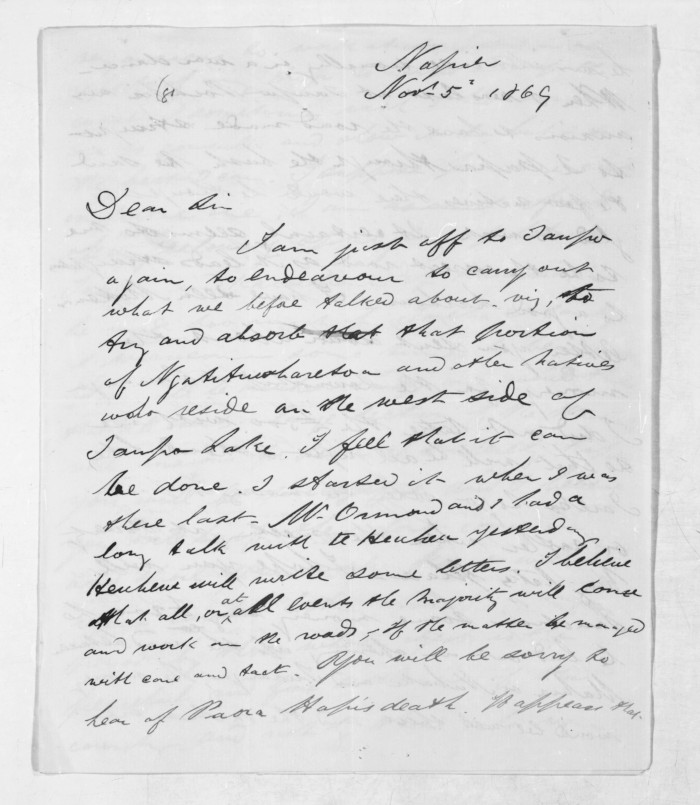 Napier
(81
Novr 5th 1869
Dear Sir
I am just off to Taupo
again, to endeavour to carry out
what we before talked about - viz, to
try and absorb that that portion
of Ngatituwharetoa and other Natives
who reside on the west side of
Taupo Lake. I feel that it can
be done. I started it when I was
there last - Mr Ormond and I had a
long talk with te Heuheu yesterday
Heuheu will write some letters. I believe
that all, or at all events the Majority will come
and work on the roads, - If the matter be managed
with care and tact. You will be sorry to
hear of Paora Hapi's death. It appears that